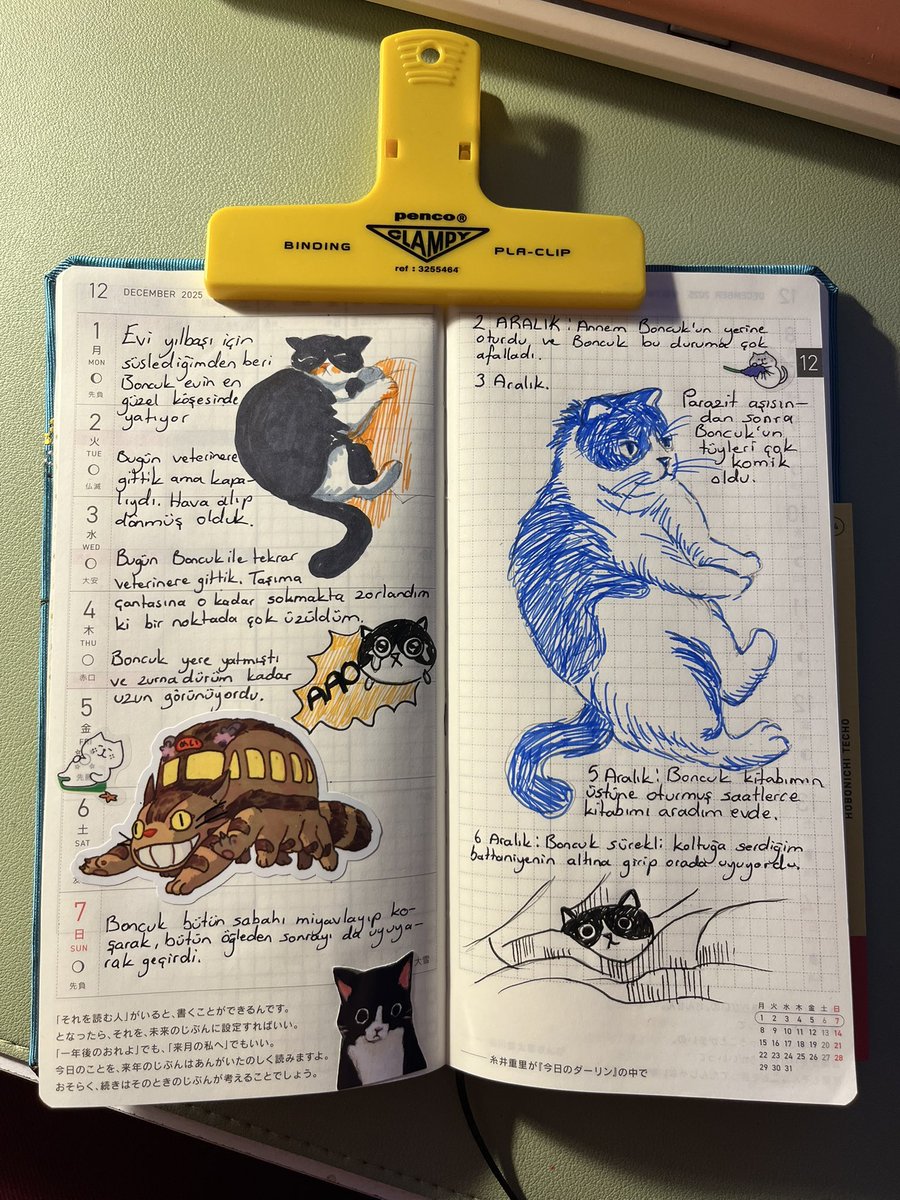 penco®
CLAMPY
BINDING
PLA-CLIP
ref : 3255464
12 DECEMBER 2025
1
月
MON
先負
Evi yılbaşı için
süslediğimden beri
Boncuk evin en
güzel köşesinde
yatıyor
2
火
TUE
仏滅
Bugün veterinere
gittik ama kapa-
lıydı. Hava alıp
dönmüş olduk.
3
水
WED
大安
Bugün Boncuk ile tekrar
veterinere gittik. Taşıma
çantasına o kadar sokmakta zorlandım
ki bir noktada çok üzüldüm.
4
木
THU
赤口
Boncuk yere yatmıştı
ve zurna dürüm kadar
uzun görünüyordu.
AAOO
5
金
FRI
先
めい
6
土
SAT
7
日
SUN
先負
Boncuk bütün sabahı miyavlayıp ko-
şarak, bütün öğleden sonrayı da uyuya-
rak geçirdi.
大雪
「それを読む人」がいると、書くことができるんです。
となったら、それを、未来のじぶんに設定すればいい。
「一年後のおれよ」でも、「来月の私へ」でもいい。
今日のことを、来年のじぶんはあんがいたのしく読みますよ。
おそらく、続きはそのときのじぶんが考えることでしょう。
2 ARALIK : Annem Boncuk'un yerine
oturdu ve Boncuk bu duruma çok
afalladı.
12
3 Aralık.
Parazit aşısın-
dan sonra
Boncuk'un
tüyleri çok
komik
oldu.
5 Aralık : Boncuk kitabımın
üstüne oturmuş saatlerce
kitabımı aradım evde.
6 Aralık : Boncuk sürekli koltuğa serdiğim
battaniyenin altına girip orada uyuyordu.
月 火 水 木 金 土 日
1 2 3 4 5 6 7
8 9 10 11 12 13 14
15 16 17 18 19 20 21
22 23 24 25 26 27 28
29 30 31
糸井重里が『今日のダーリン』の中で
HOBONICHI TECHO